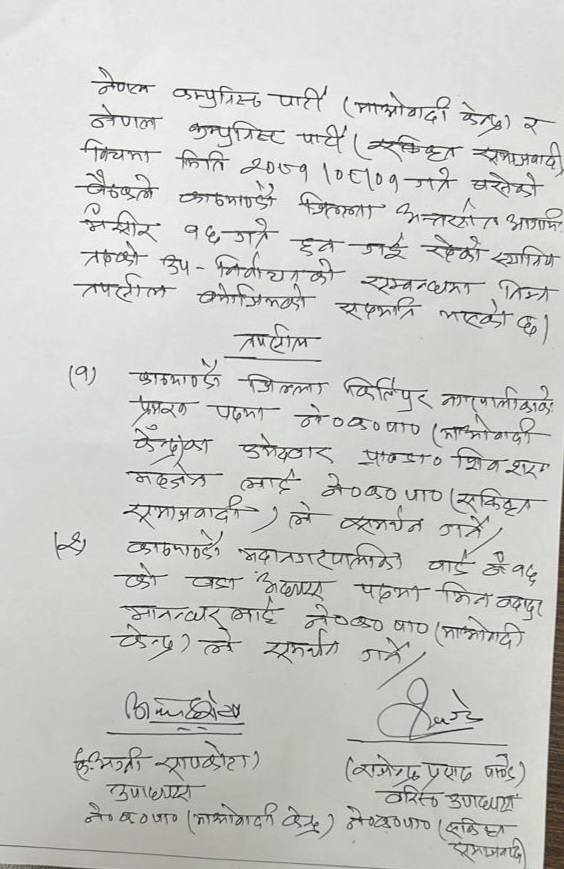 नेपाल कम्युनिस्ट पार्टी (माओवादी केन्द्र) र
नेपाल कम्युनिस्ट पार्टी (एकिकृत समाजवादी)
विचमा मिति २०८१।०८।०१ गते बसेको
बैठकले काठमाण्डौ जिल्ला अन्तर्गत आगामि
मँसीर १६ गते हुन गई रहेको स्थानिय
तहको उप-निर्वाचनको सम्बन्धमा निम्न
तपशील बमोजिमको सहमति भएको छ।
तपशील
(१) काठमाण्डौ जिल्ला किर्तिपुर नगरपालीकाको
प्रमुख पदमा ने०क०पा० (माओवादी
केन्द्र)का उमेदवार प्रा०डा० शिव शरण
महर्जन लाई ने०क०पा० (एकिकृत
समाजवादी) ले समर्थन गर्ने/
(२) काठमाण्डौ महानगरपालीका वार्ड नँ १६
को वडा अध्यक्ष पदमा भिन बहादुर
मानन्धर लाई ने०क०पा० (माओवादी
केन्द्र) ले समर्थन गर्ने/
सापकोटा)
(राजेन्द्र प्रसाद पाण्डे)
उपाध्यक्ष
वरिष्ठ उपाध्यक्ष
ने०क०पा० (माओवादी केन्द्र)
ने०क०पा० (एकिकृत
समाजवादी)